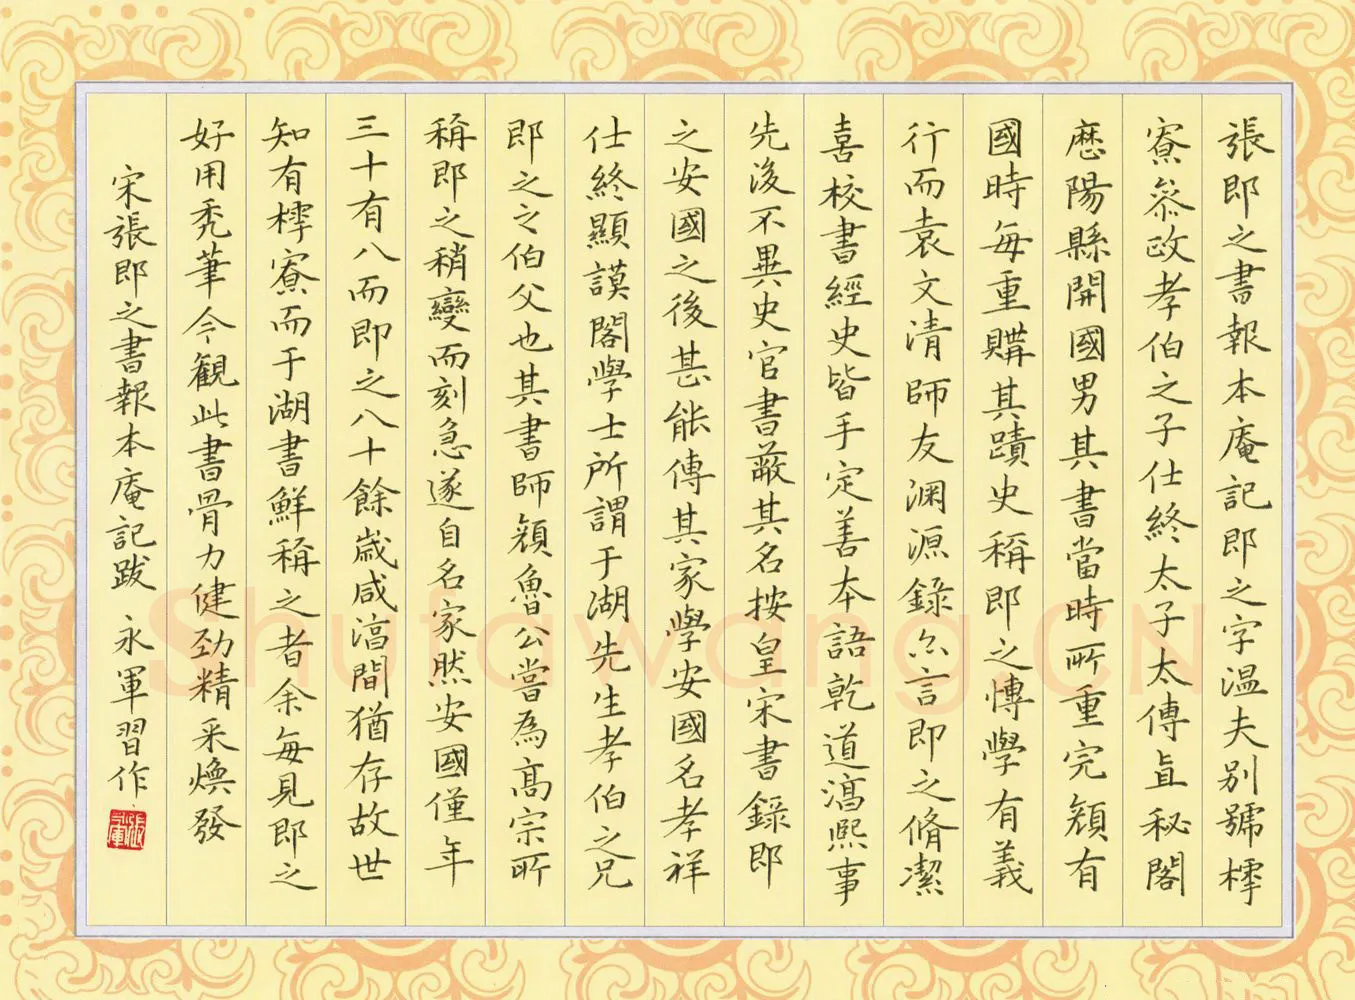 張即之書報本庵記即之字温夫別號樗
寮叅政孝伯之子仕終太子太傅直秘閣
歴陽縣開國男其書當時所重完顏有
國時每重購其蹟史稱即之愽學有義
行而袁文清師友渊源錄亦言即之脩潔
喜校書經史皆手定善本語乾道淳熙事
先後不異史官書蔽其名按皇宋書錄即
之安國之後甚能傳其家學安國名孝祥
仕終顯謨閣學士所謂于湖先生孝伯之兄
即之之伯父也其書師顏魯公嘗為高宗所
稱即之稍變而刻急遂自名家然安國僅年
三十有八而即之八十餘歲咸淳間猶存故世
知有樗寮而于湖書鮮稱之者余每見即之
好用禿筆今観此書骨力健劲精采煥發
宋張即之書報本庵記跋 永軍習作
張
軍
Shufawang.CN